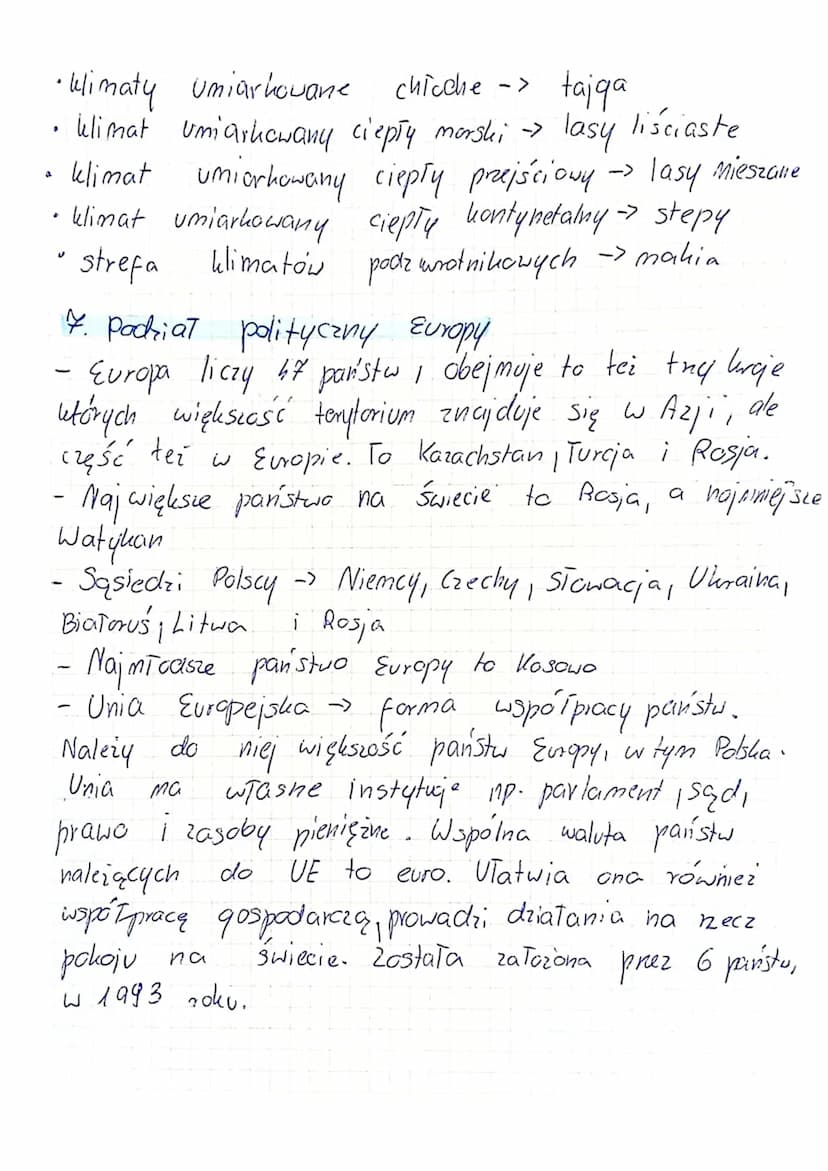 • klimaty umiarkowane chłodne -> tajga
• klimat umiarkowany ciepły morski -> lasy liściaste
• klimat umiarkowany ciepły przejściowy -> lasy mieszane
• klimat umiarkowany ciepły kontynetalny -> stepy
• strefa klimatów podzwrotnikowych -> makia
7. Podział polityczny Europy
- Europa liczy 47 państw, obejmuje to też trzy kraje
których większość terytorium znajduje się w Azji, ale
część też w Europie. To Kazachstan, Turcja i Rosja.
- Największe państwo na świecie to Rosja, a najmniejsze
Watykan
- Sąsiedzi Polscy -> Niemcy, Czechy, Słowacja, Ukraina,
Białoruś, Litwa i Rosja
- Najmłodsze państwo Europy to Kosowo
- Unia Europejska -> forma współpracy państw.
Należy do niej większość państw Europy, w tym Polska.
Unia ma własne instytuje np. parlament, sąd,
prawo i zasoby pieniężne. Wspólna waluta państw
należących do UE to euro. Ułatwia ona również
współpracę gospodarczą, prowadzi działania na rzecz
pokoju na świecie. Została założona przez 6 państw,
w 1993 roku.